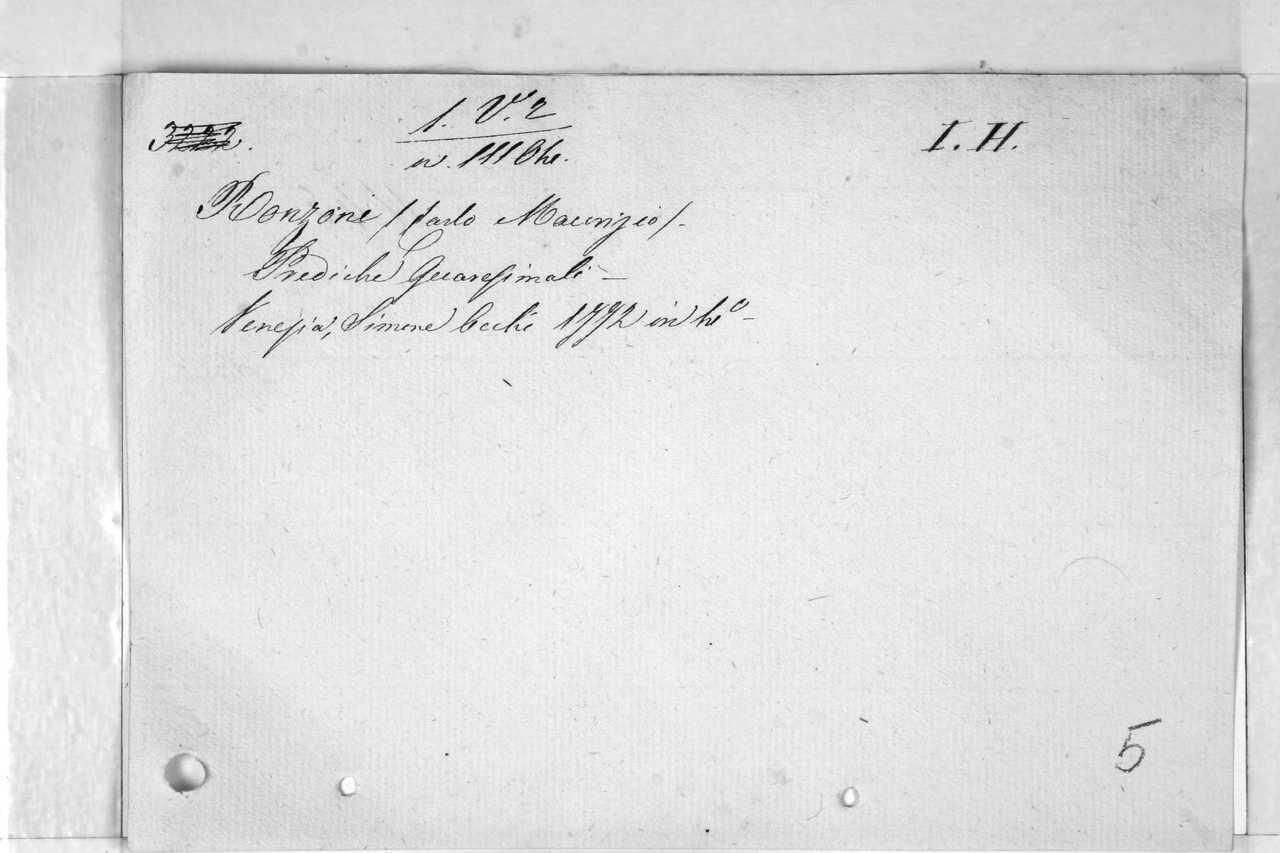 1. Vᵒ. 2
I. H.
Ronzoni /Carlo Maurizio/-
Prediche Quaresimali -
Venezia, Simone Occhi 1772 in 4º -
5